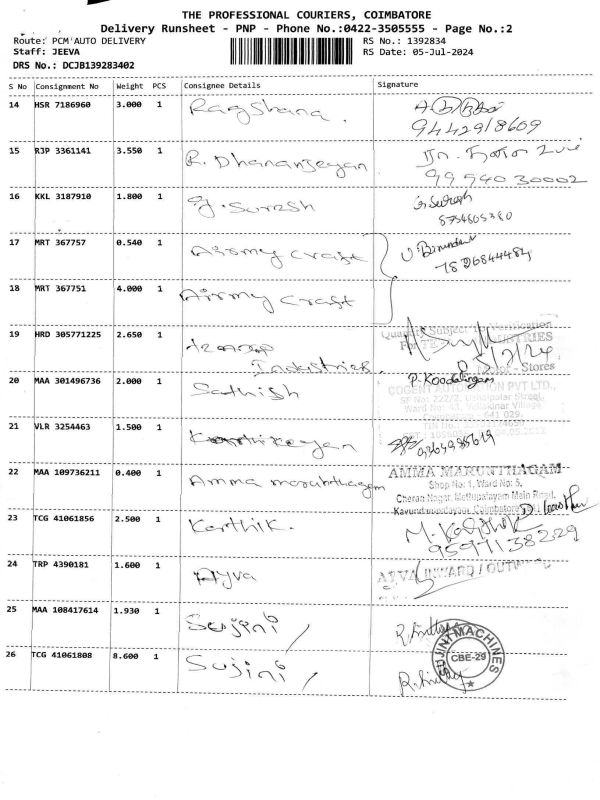 THE PROFESSIONAL COURIERS, COIMBATORE
Delivery Runsheet - PNP - Phone No.:0422-3505555 - Page No.:2
Route: PCM AUTO DELIVERY
RS No.: 1392834
Staff: JEEVA
RS Date: 05-Jul-2024
DRS No.: DCJB139283402
S No Consignment No Weight PCS Consignee Details Signature
14 HSR 7186960 3.000 1
9442918609
15 RJP 3361141 3.550 1 R. Dhananjeyan
9994030002
16 KKL 3187910 1.800 1 G. Suresh G. Suresh
17 MRT 367757 0.540 1 Airmy craft
7826844484
18 MRT 367751 4.000 1 Airmy craft
Quantity Subject To Verification
19 HRD 305771225 2.650 1 Industries.
5/7/24
Stores
20 MAA 301496736 2.000 1 Sathish P. Koodalingam
COGENT PVT LTD.,
21 VLR 3254463 1.500 1 Karthikeyan
22 MAA 109736211 0.400 1 Amma marunthagam AMMA MARUNTHAGAM
Shop No: 1, Ward No: 5,
Cheran Nagar, Mettupalayam Main Road,
23 TCG 41061856 2.500 1 Karthik. M. Karthik
9597138229
24 TRP 4390181 1.600 1 Ayva AYVA INWARD /
25 MAA 108417614 1.930 1 Sujini
26 TCG 41061808 8.600 1 Sujini
SUJINI MACHINES
CBE-29